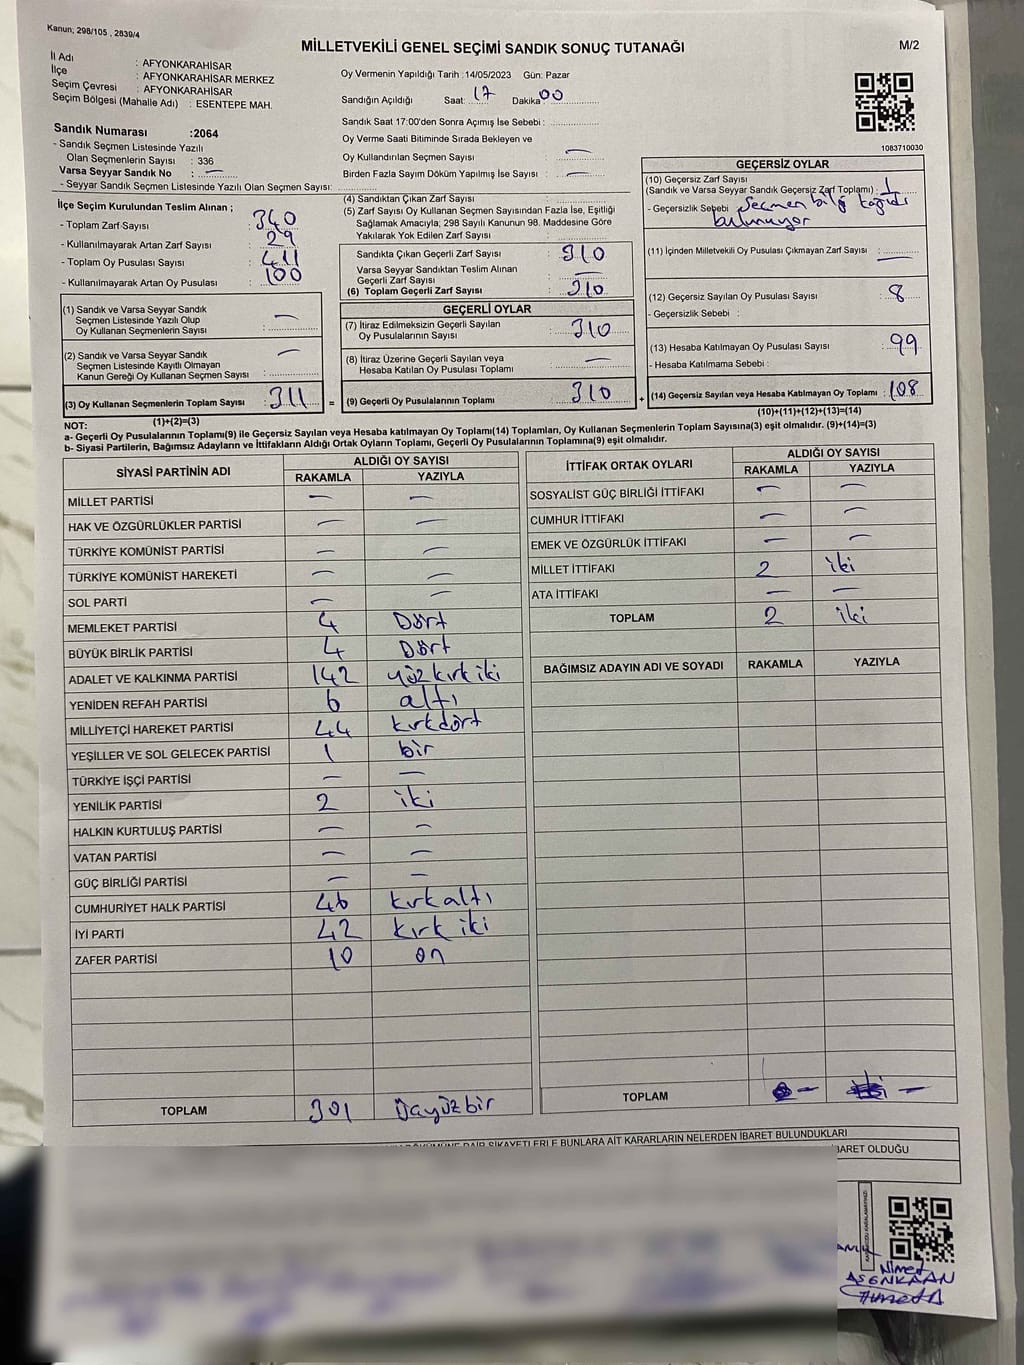 Kanun; 298/105 , 2839/4
MİLLETVEKİLİ GENEL SEÇİMİ SANDIK SONUÇ TUTANAĞI
M/2
İl Adı : AFYONKARAHİSAR
İlçe : AFYONKARAHİSAR MERKEZ
Seçim Çevresi : AFYONKARAHİSAR
Seçim Bölgesi (Mahalle Adı) : ESENTEPE MAH.
Sandık Numarası :2064
- Sandık Seçmen Listesinde Yazılı
Olan Seçmenlerin Sayısı : 336
Varsa Seyyar Sandık No : —
- Seyyar Sandık Seçmen Listesinde Yazılı Olan Seçmen Sayısı:
Oy Vermenin Yapıldığı Tarih :14/05/2023 Gün: Pazar
Sandığın Açıldığı Saat: 17 Dakika 00
Sandık Saat 17:00'den Sonra Açımış İse Sebebi :
Oy Verme Saati Bitiminde Sırada Bekleyen ve
Oy Kullandırılan Seçmen Sayısı : —
Birden Fazla Sayım Döküm Yapılmış İse Sayısı : —
1083710030
İlçe Seçim Kurulundan Teslim Alınan ;
- Toplam Zarf Sayısı : 340
- Kullanılmayarak Artan Zarf Sayısı : 29
- Toplam Oy Pusulası Sayısı : 411
- Kullanılmayarak Artan Oy Pusulası : 100
(1) Sandık ve Varsa Seyyar Sandık
Seçmen Listesinde Yazılı Olup
Oy Kullanan Seçmenlerin Sayısı : —
(2) Sandık ve Varsa Seyyar Sandık
Seçmen Listesinde Kayıtlı Olmayan
Kanun Gereği Oy Kullanan Seçmen Sayısı : —
(3) Oy Kullanan Seçmenlerin Toplam Sayısı : 311
(1)+(2)=(3)
(4) Sandıktan Çıkan Zarf Sayısı :
(5) Zarf Sayısı Oy Kullanan Seçmen Sayısından Fazla İse, Eşitliği
Sağlamak Amacıyla, 298 Sayılı Kanunun 98. Maddesine Göre
Yakılarak Yok Edilen Zarf Sayısı :
Sandıkta Çıkan Geçerli Zarf Sayısı : 310
Varsa Seyyar Sandıktan Teslim Alınan
Geçerli Zarf Sayısı : —
(6) Toplam Geçerli Zarf Sayısı : 310
GEÇERLİ OYLAR
(7) İtiraz Edilmeksizin Geçerli Sayılan
Oy Pusulalarının Sayısı : 310
(8) İtiraz Üzerine Geçerli Sayılan veya
Hesaba Katılan Oy Pusulası Toplamı : —
= (9) Geçerli Oy Pusulalarının Toplamı : 310
GEÇERSİZ OYLAR
(10) Geçersiz Zarf Sayısı
(Sandık ve Varsa Seyyar Sandık Geçersiz Zarf Toplamı) : 1
- Geçersizlik Sebebi : Seçmen bilgi kağıdı
bulunuyor
(11) İçinden Milletvekili Oy Pusulası Çıkmayan Zarf Sayısı : —
(12) Geçersiz Sayılan Oy Pusulası Sayısı : 8
- Geçersizlik Sebebi :
(13) Hesaba Katılmayan Oy Pusulası Sayısı : 99
- Hesaba Katılmama Sebebi :
+ (14) Geçersiz Sayılan veya Hesaba Katılmayan Oy Toplamı : 108
(10)+(11)+(12)+(13)=(14)
NOT:
a- Geçerli Oy Pusulalarının Toplamı(9) ile Geçersiz Sayılan veya Hesaba katılmayan Oy Toplamı(14) Toplamları, Oy Kullanan Seçmenlerin Toplam Sayısına(3) eşit olmalıdır. (9)+(14)=(3)
b- Siyasi Partilerin, Bağımsız Adayların ve İttifakların Aldığı Ortak Oyların Toplamı, Geçerli Oy Pusulalarının Toplamına(9) eşit olmalıdır.
SİYASİ PARTİNİN ADI ALDIĞI OY SAYISI
RAKAMLA YAZIYLA
MİLLET PARTİSİ — —
HAK VE ÖZGÜRLÜKLER PARTİSİ — —
TÜRKİYE KOMÜNİST PARTİSİ — —
TÜRKİYE KOMÜNİST HAREKETİ — —
SOL PARTİ — —
MEMLEKET PARTİSİ 4 Dört
BÜYÜK BİRLİK PARTİSİ 4 Dört
ADALET VE KALKINMA PARTİSİ 142 yüzkırkiki
YENİDEN REFAH PARTİSİ 6 altı
MİLLİYETÇİ HAREKET PARTİSİ 44 kırkdört
YEŞİLLER VE SOL GELECEK PARTİSİ 1 bir
TÜRKİYE İŞÇİ PARTİSİ — —
YENİLİK PARTİSİ 2 iki
HALKIN KURTULUŞ PARTİSİ — —
VATAN PARTİSİ — —
GÜÇ BİRLİĞİ PARTİSİ — —
CUMHURİYET HALK PARTİSİ 46 kırkaltı
İYİ PARTİ 42 kırk iki
ZAFER PARTİSİ 10 on
TOPLAM 301 üçyüzbir
İTTİFAK ORTAK OYLARI ALDIĞI OY SAYISI
RAKAMLA YAZIYLA
SOSYALİST GÜÇ BİRLİĞİ İTTİFAKI — —
CUMHUR İTTİFAKI — —
EMEK VE ÖZGÜRLÜK İTTİFAKI — —
MİLLET İTTİFAKI 2 iki
ATA İTTİFAKI — —
TOPLAM 2 iki
BAĞIMSIZ ADAYIN ADI VE SOYADI RAKAMLA YAZIYLA
TOPLAM — —
DÖKÜMÜNE DAİR ŞİKAYETLERLE BUNLARA AİT KARARLARIN NELERDEN İBARET BULUNDUKLARI
İBARET OLDUĞU
Nimet
ASENKAAN